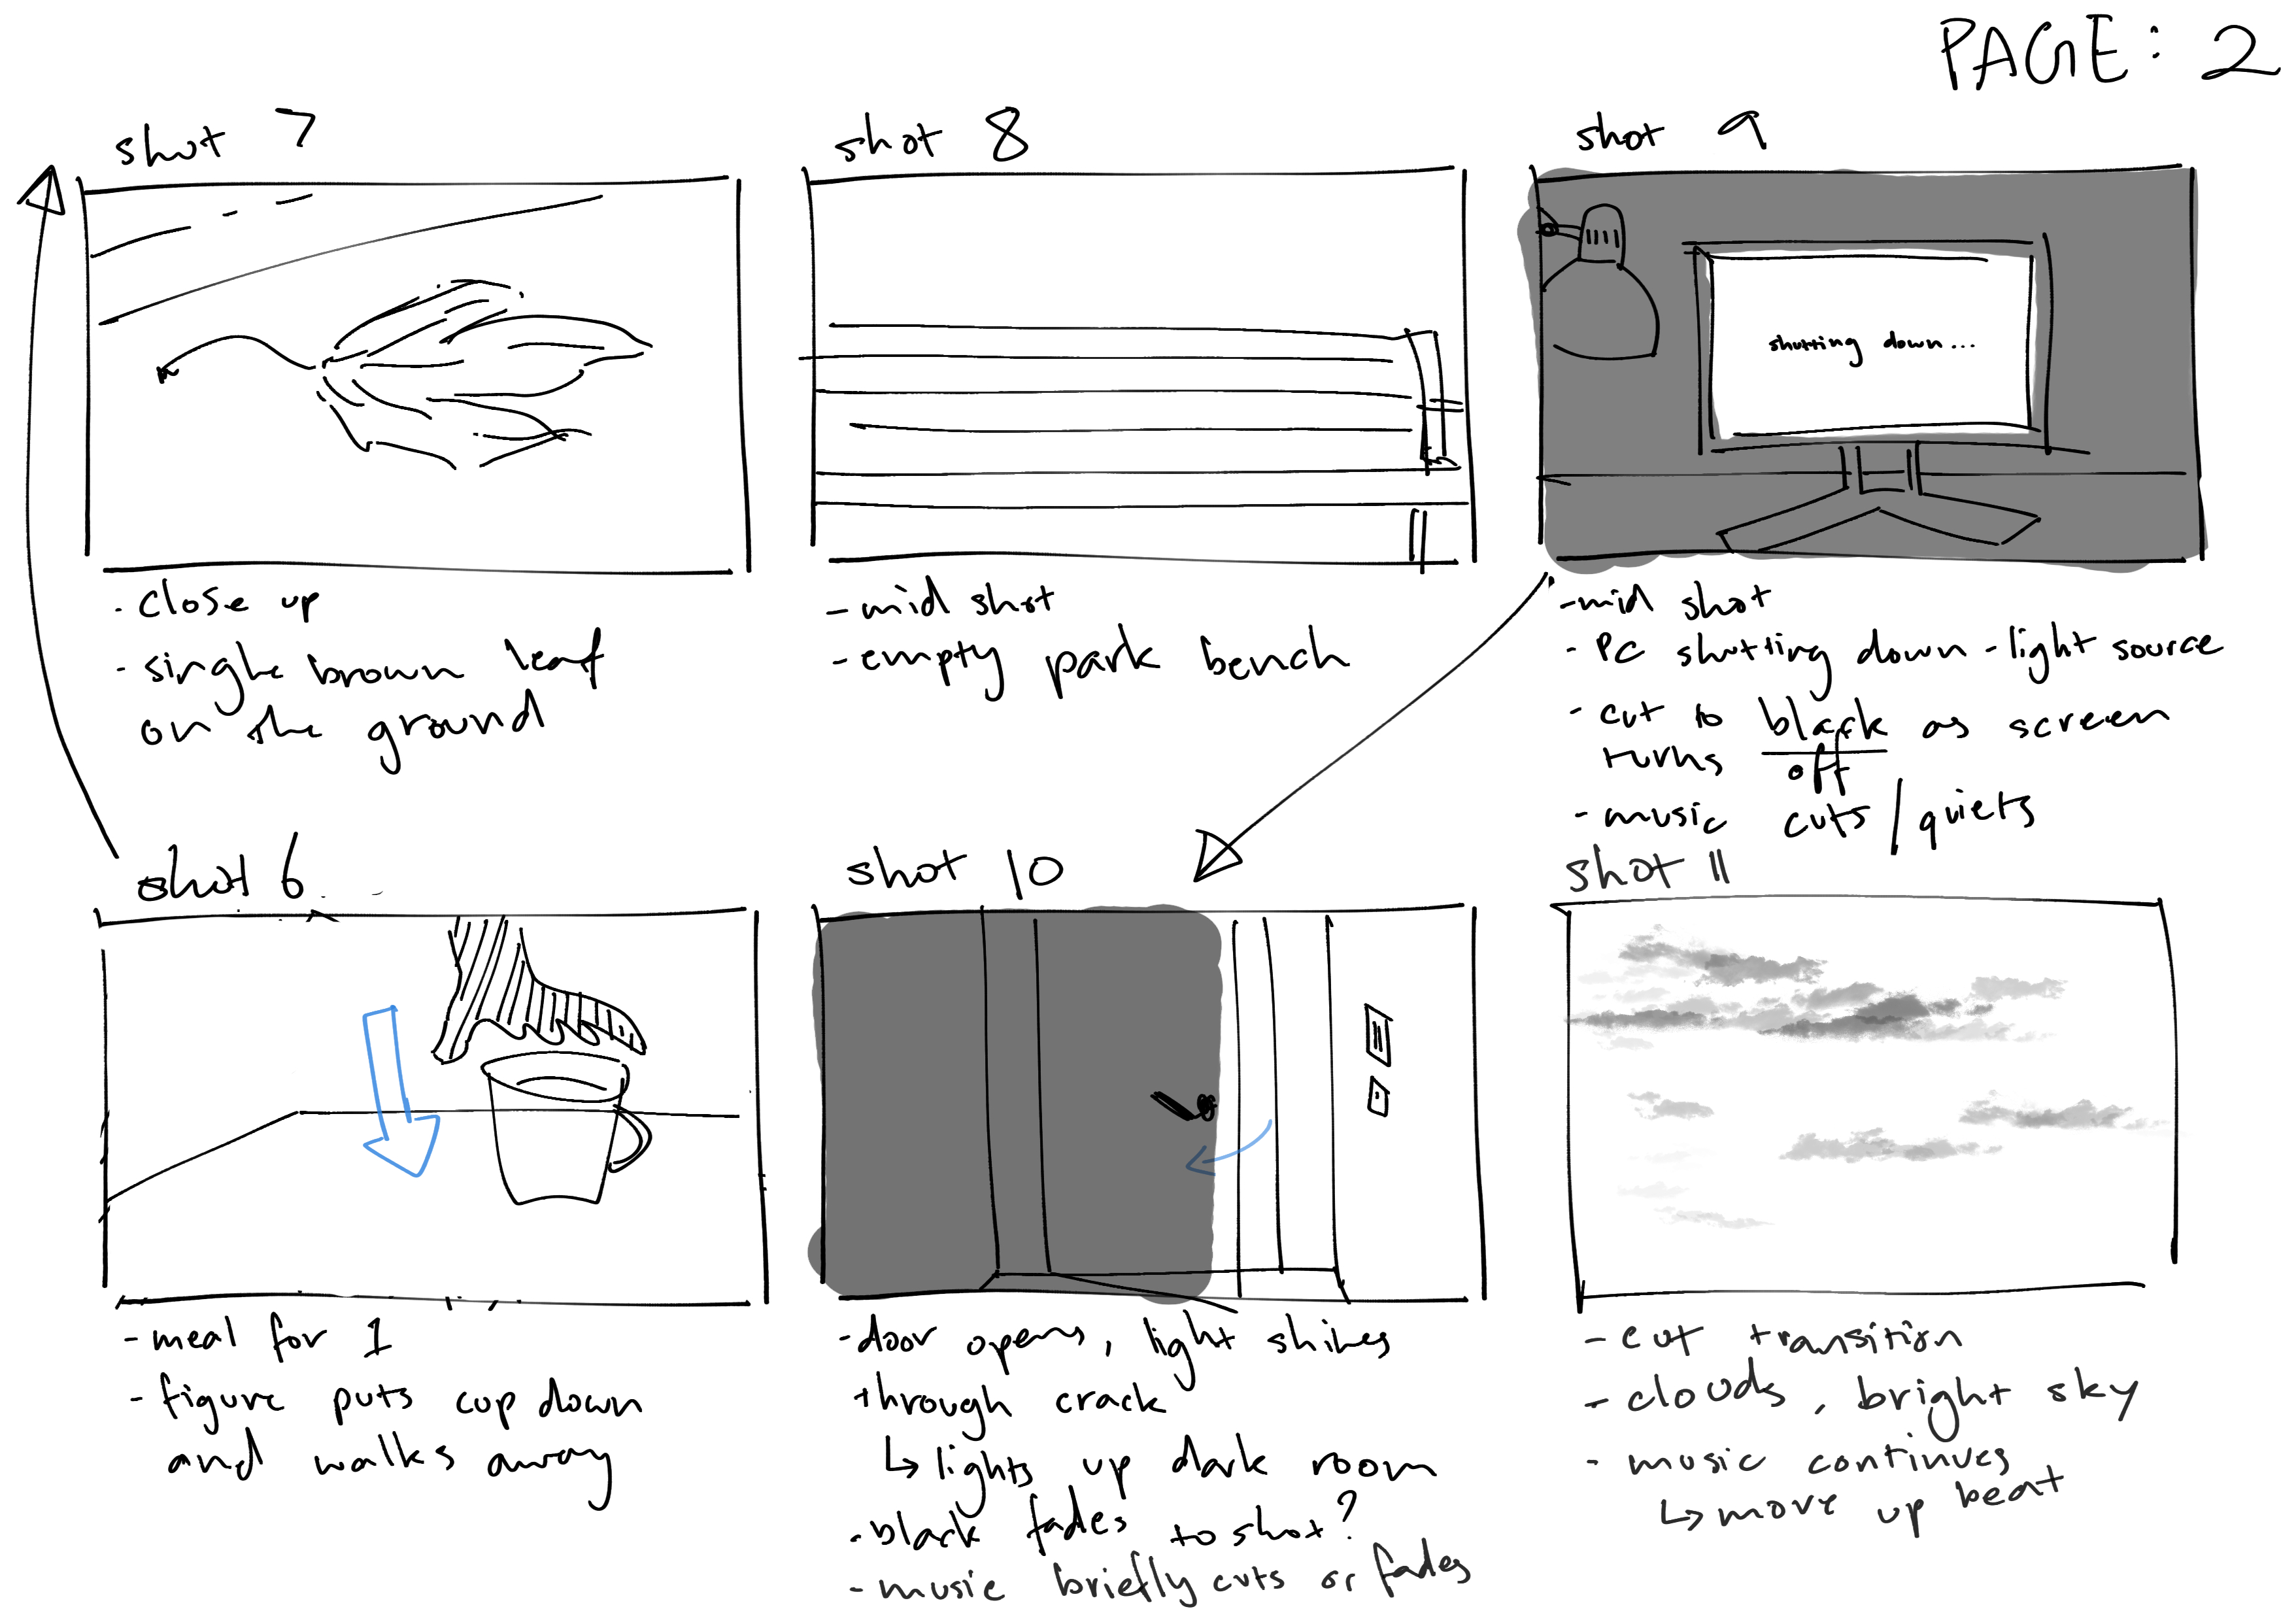 PAGE: 2
shot 7
- close up
- single brown leaf
on the ground
shot 8
- mid shot
- empty park bench
shot 9
shutting down...
- mid shot
- PC shutting down - light source
- cut to black as screen
turns off
- music cuts/quiets
shot 6
- meal for 1
- figure puts cup down
and walks away
shot 10
- door opens, light shines
through crack
↳ lights up dark room
- black fades to shot?
- music briefly cuts or fades
shot 11
- cut transition
- clouds, bright sky
- music continues
↳ more up beat